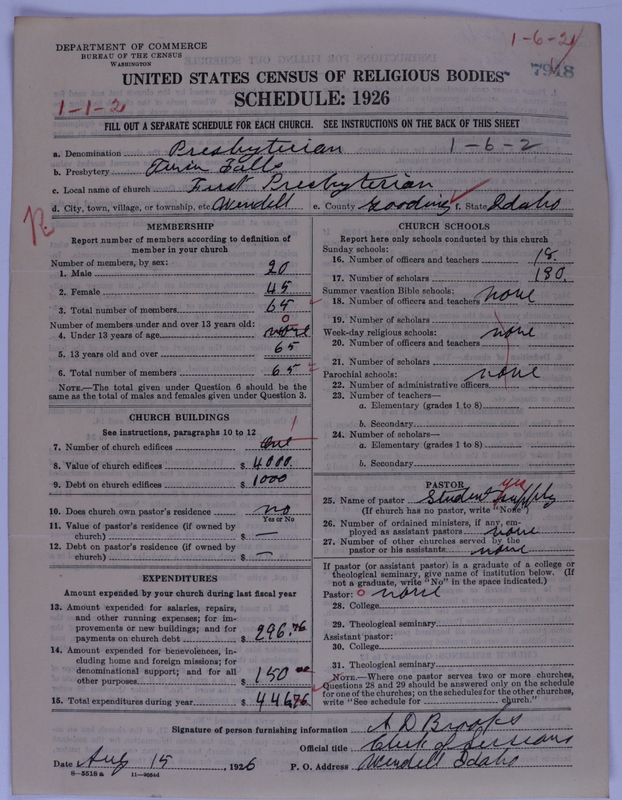 1-6-2
DEPARTMENT OF COMMERCE
BUREAU OF THE CENSUS
WASHINGTON
7918
UNITED STATES CENSUS OF RELIGIOUS BODIES
1-1-2
SCHEDULE: 1926
FILL OUT A SEPARATE SCHEDULE FOR EACH CHURCH. SEE INSTRUCTIONS ON THE BACK OF THIS SHEET
a. Denomination Presbyterian 1-6-2
b. Presbytery Twin Falls
c. Local name of church First Presbyterian
d. City, town, village, or township, etc. Wendell e. County Gooding f. State Idaho
MEMBERSHIP
Report number of members according to definition of
member in your church
Number of members, by sex:
1. Male 20
2. Female 45
3. Total number of members 65
Number of members under and over 13 years old: 0
4. Under 13 years of age none
5. 13 years old and over 65
6. Total number of members 65
NOTE.—The total given under Question 6 should be the
same as the total of males and females given under Question 3.
CHURCH BUILDINGS
See instructions, paragraphs 10 to 12 1
7. Number of church edifices One
8. Value of church edifices $ 4000.
9. Debt on church edifices $ 1000
10. Does church own pastor's residence no
Yes or No
11. Value of pastor's residence (if owned by
church) $ —
12. Debt on pastor's residence (if owned by
church) $ —
EXPENDITURES
Amount expended by your church during last fiscal year
13. Amount expended for salaries, repairs,
and other running expenses; for im-
provements or new buildings; and for
payments on church debt $ 296.76
14. Amount expended for benevolences, in-
cluding home and foreign missions; for
denominational support; and for all
other purposes $ 150 00
15. Total expenditures during year $ 446.76
CHURCH SCHOOLS
Report here only schools conducted by this church
Sunday schools:
16. Number of officers and teachers 18.
17. Number of scholars 180.
Summer vacation Bible schools:
18. Number of officers and teachers none
19. Number of scholars
Week-day religious schools: none
20. Number of officers and teachers
21. Number of scholars
Parochial schools: none
22. Number of administrative officers
23. Number of teachers—
a. Elementary (grades 1 to 8)
b. Secondary
24. Number of scholars—
a. Elementary (grades 1 to 8)
b. Secondary
PASTOR yes
25. Name of pastor Student supply
(If church has no pastor, write "None")
26. Number of ordained ministers, if any, em-
ployed as assistant pastors none
27. Number of other churches served by the
pastor or his assistants none
If pastor (or assistant pastor) is a graduate of a college or
theological seminary, give name of institution below. (If
not a graduate, write "No" in the space indicated.)
Pastor: 0 none
28. College
29. Theological seminary
Assistant pastor:
30. College
31. Theological seminary
NOTE.—Where one pastor serves two or more churches,
Questions 28 and 29 should be answered only on the schedule
for one of the churches; on the schedules for the other churches,
write "See schedule for church."
Signature of person furnishing information A D Brooks
Official title Clerk of Sessions
Date Aug 15, 1926 P. O. Address Wendell Idaho
8—5518 a